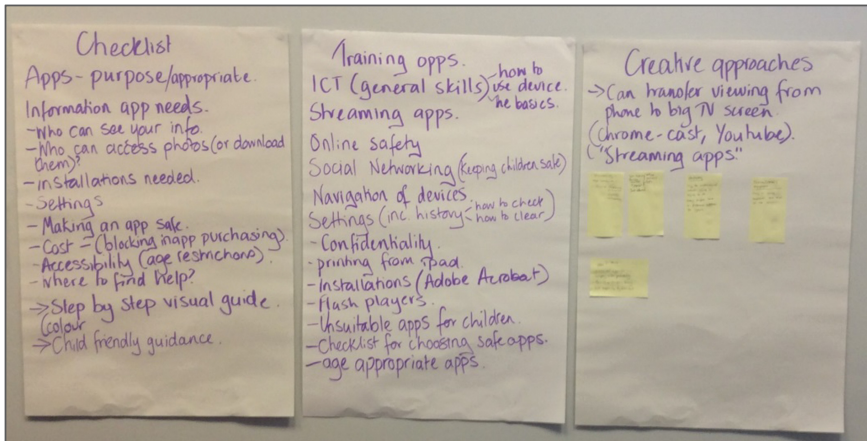 Checklist
Apps - purpose/appropriate.
Information app needs.
- Who can see your info.
- Who can access photos (or download
them)?
- Installations needed.
- Settings
- Making an app safe.
- Cost - (blocking inapp purchasing).
- Accessibility (age restrictions).
- Where to find help?
→ Step by step visual guide.
(colour
→ Child friendly guidance.
Training opps.
ICT (general skills) - how to
use device.
the basics.
Streaming apps.
Online safety
Social Networking (keeping children safe)
Navigation of devices
Settings (inc. history < how to check
how to clear)
- Confidentiality.
- printing from ipad.
- Installations (Adobe Acrobat)
- Flash players.
- Unsuitable apps for children.
- Checklist for choosing safe apps.
- age appropriate apps.
Creative approaches
→ Can transfer viewing from
phone to big TV screen.
(Chrome-cast, Youtube).
("Streaming apps."